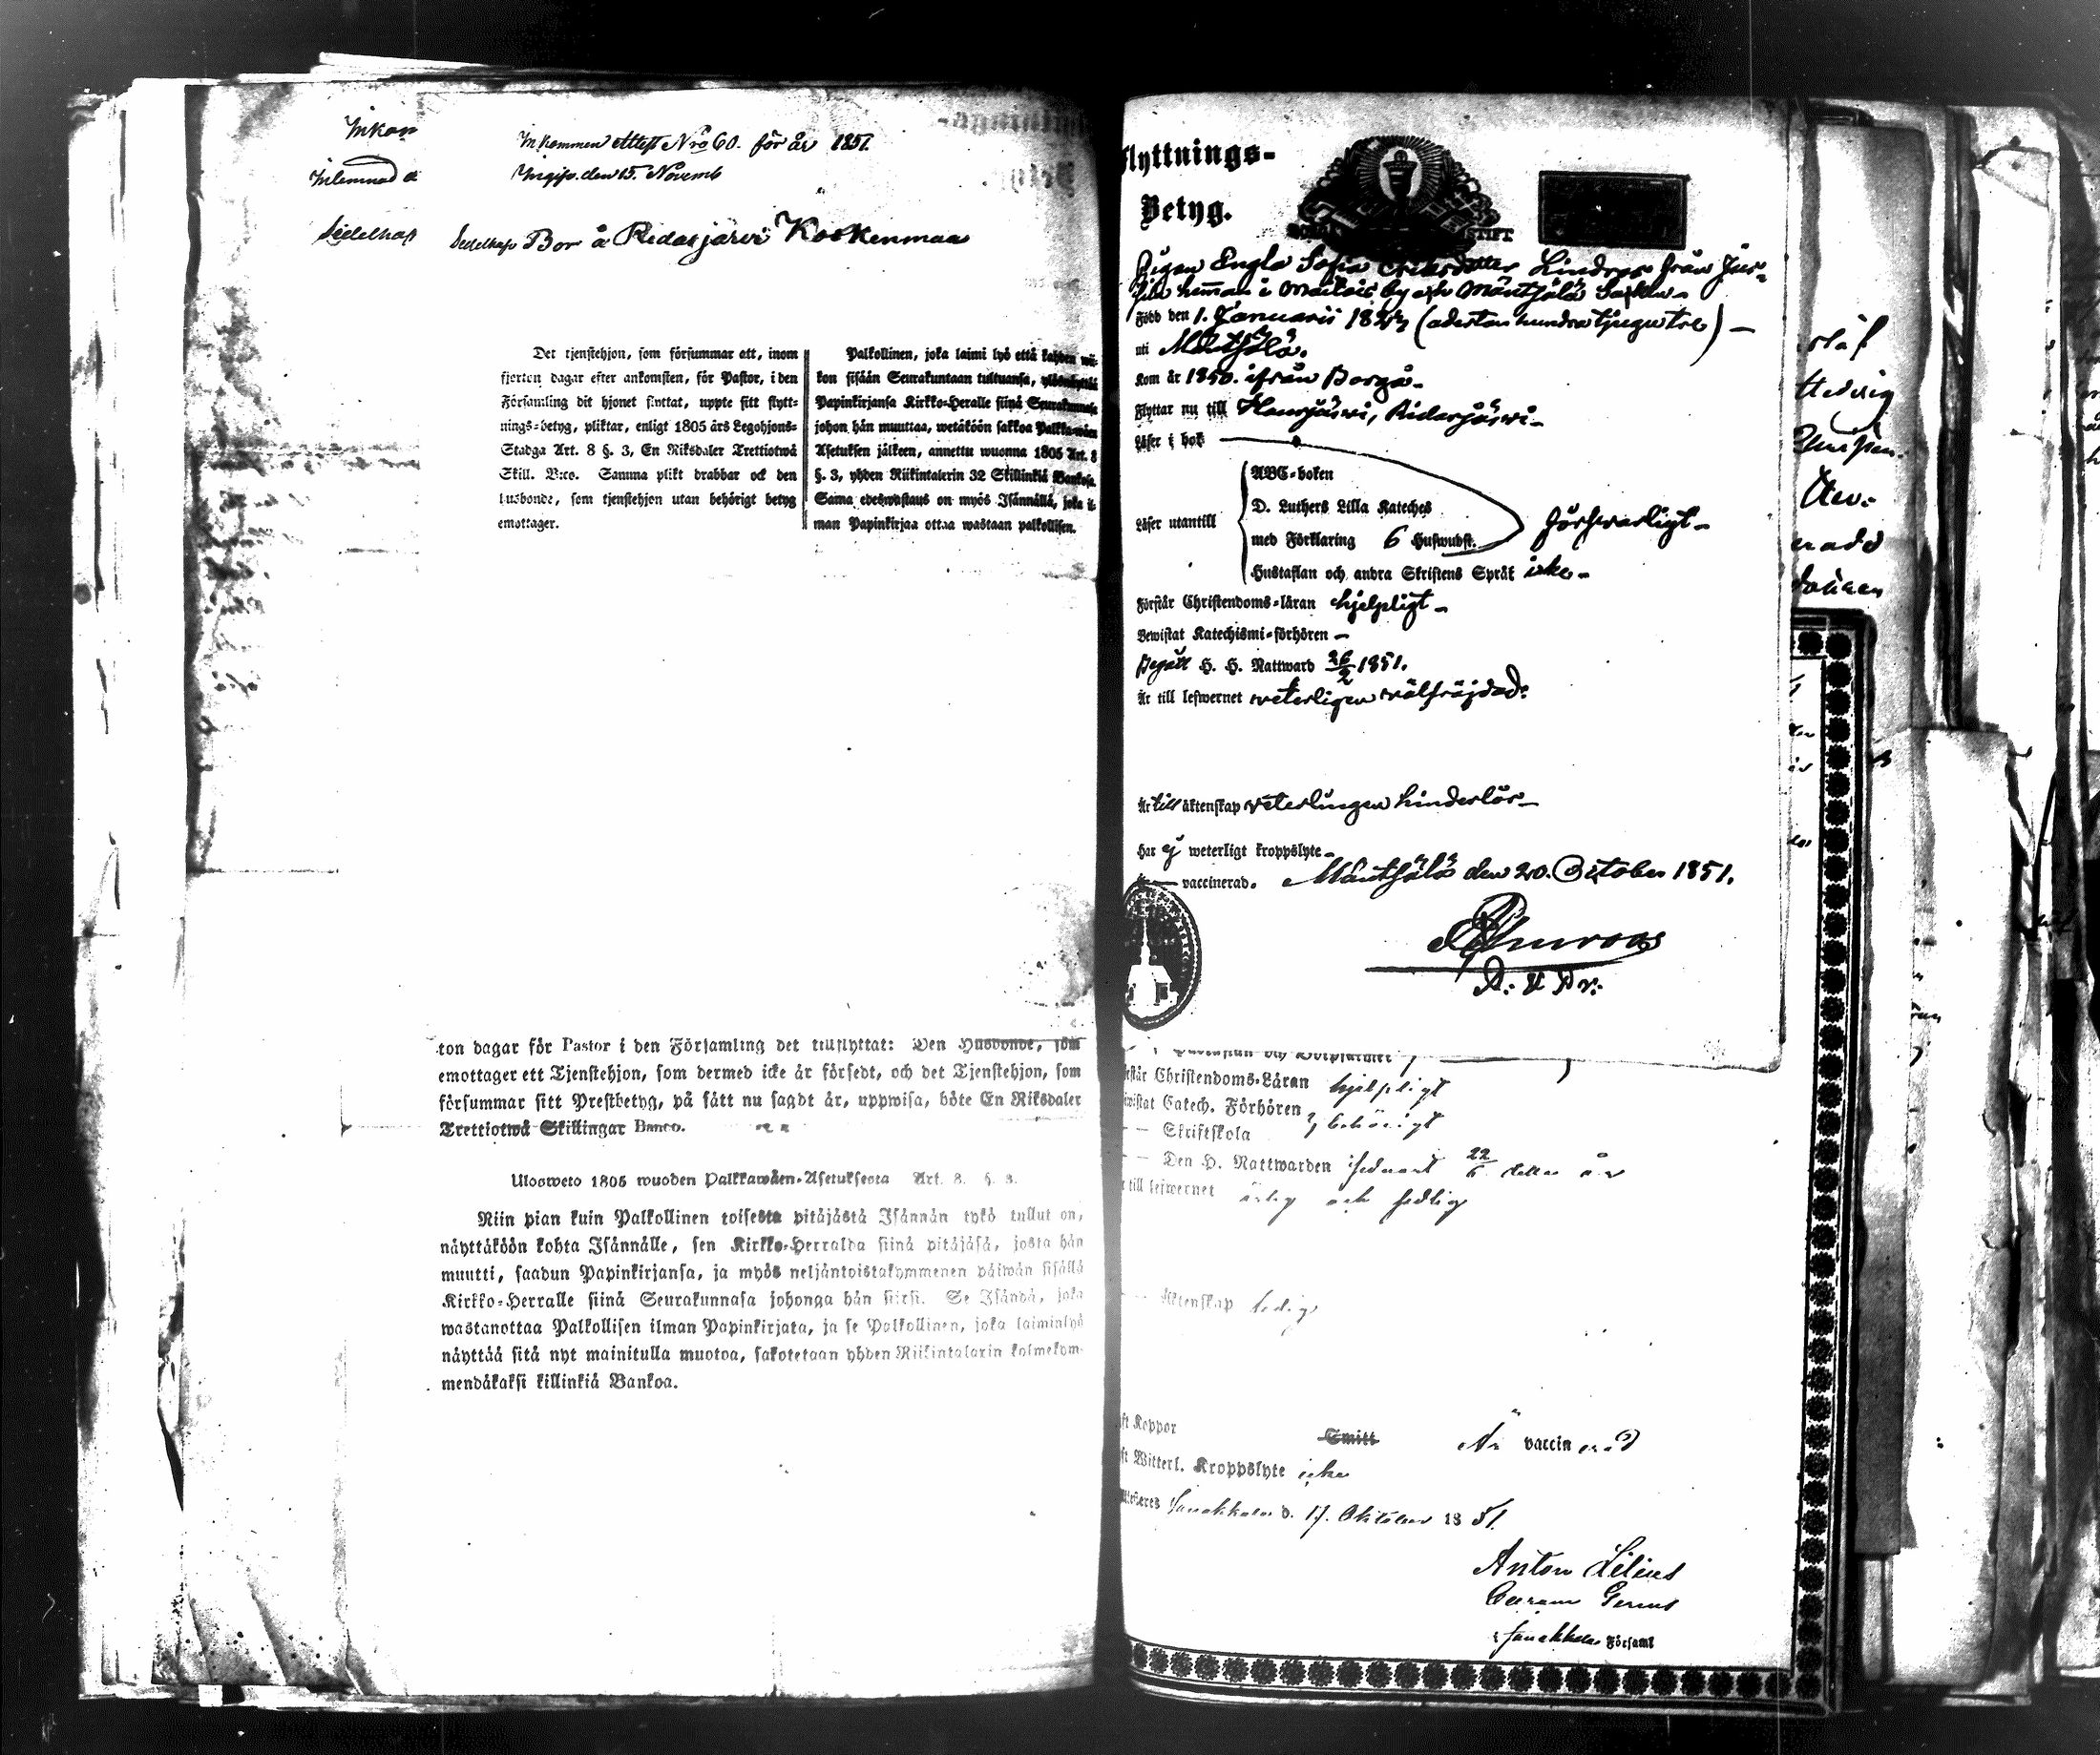 Inkom
Inlemnad d
Sedelhaf
Inkommen Attest Nro 60. för år 1851.
Ingifv. den 15. Novemb
Sedelhafv Bor å Ridasjärvi Koskenmaa
Det tjenstehjon, som försummar att, inom
fjorton dagar efter ankomsten, för Pastor, i den
Församling dit hjonet flyttat, uppte sitt flytt-
nings-betyg, pliktar, enligt 1805 års Legohjons-
Stadga Art. 8 §. 3, En Riksdaler Trettiotwå
Skill. B:co. Samma plikt drabbar ock den
husbonde, som tjenstehjon utan behörigt betyg
emottager.
Palkollinen, joka laimi lyö että kahden wii-
kon sisään Seurakuntaan tultuansa, ylösnäyttää
Papinkirjansa Kirkko-Heralle siinä Seurakunnasa
johon hän muuttaa, wetäköön sakkoa Palkkawäen
Asetuksen jälkeen, annettu wuonna 1805 Art. 8
§. 3, yhden Riikintalerin 32 Skillinkiä Bankosa.
Sama edeswastaus on myös Isännällä, joka il-
man Papinkirjaa ottaa wastaan palkollisen.
ton dagar för Pastor i den Församling det tillflyttat: Den Husbonde, som
emottager ett Tjenstehjon, som dermed icke är försedt, och det Tjenstehjon, som
försummar sitt Prestbetyg, på sätt nu sagdt är, uppwisa, böte En Riksdaler
Trettiotwå Skillingar Banco.
Ulosweto 1805 wuoden Palkkawäen-Asetuksesta Art. 8. §. 3.
Niin pian kuin Palkollinen toisesta pitäjästä Isännän tykö tullut on,
näyttäköön kohta Isännälle, sen Kirkko-Herralda siinä pitäjäsä, josta hän
muutti, saadun Papinkirjansa, ja myös neljäntoistakymmenen päiwän sisällä
Kirkko-Herralle siinä Seurakunnasa johonga hän siirsi. Se Isändä, joka
wastanottaa Palkollisen ilman Papinkirjata, ja se Palkollinen, joka laiminlyö
näyttää sitä nyt mainitulla muotoa, sakotetaan yhden Riikintalarin kolmekym-
mendäkaksi killinkiä Bankoa.
Flyttnings-
Betyg.
STIFT
Pigan Engla Sofia Eriksdotter Lindroos från Jus-
sila heman i by och Mäntsälä Socken-
Född den 1. Januarii 1823 (aderton hundra tjugu tre) -
uti Mäntsälä.
Kom år 1850. ifrån Borgå.
Flyttar nu till Hausjärvi, Ridasjärvi.
Läser i bok
Läser utantill
ABC-boken
D. Luthers Lilla Kateches
med Förklaring 6 Hufwudst.
försvarligt-
Hustaflan och andra Skriftens Språk icke-
Förstår Christendoms-läran hjelpligt-
Bewistat Katechismi-förhören -
Begått H. H. Nattward 26/2 1851.
Är till lefwernet veterligen välfräjdad.
Är till äktenskap veterligen hinderlös-
Har ej weterligt kroppslyte-
vaccinerad. Mäntsälä den 20. October 1851.
förstår Christendoms-Läran hjelpligt
Bewistat Catech. Förhören } behörigt
— — Skriftskola
— — Den H. Nattwarden senast 22/6 detta år
till lefwernet ärlig och sedlig
— — Äktenskap ledig
Haft Koppor Smitt Är vaccinerad
Witterl. Kroppslyte icke
Attesteras Janakkala d. 17. Oktober 1851.
Anton Lilius
i Janakkala Församl
Hedvig